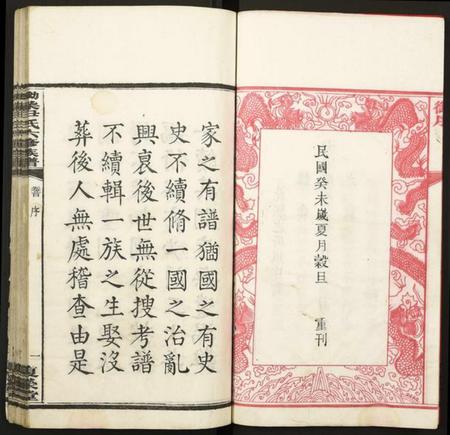 民國癸未歲夏月穀旦
重刊
家之有譜猶國之有史
史不續脩一國之治亂
興衰後世無從搜考譜
不續輯一族之生娶沒
葬後人無處稽查由是
氏六修族譜
序
一